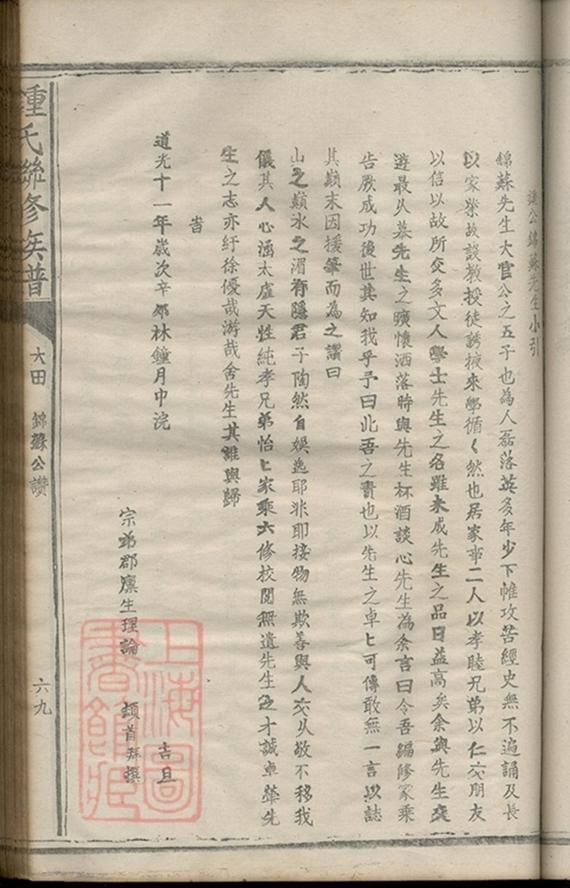 讚公錦蘇先生小引
錦蘇先生大官公之五子也為人磊落英多年少下帷攻苦經史無不遍誦及長
以家業故設教授徒誘掖來學循〱然也居家事二人以孝睦兄弟以仁交朋友
以信以故所交多文人學士先生之名雖未成先生之品日益高矣余與先生交
遊最久慕先生之曠懷洒落時與先生杯酒談心先生為余言曰今吾編修家乘
告厥成功後世其知我乎予曰此吾之責也以先生之卓〻可傳敢無一言以誌
其巔末因援筆而為之讚曰
山之巔水之湄有隱君子陶然自娛逸耶非耶接物無欺善與人交久敬不移我
儀其人心涵太虛天性純孝兄弟怡〻家乘六修校閱無遺先生之才誠卓犖先
生之志亦紆徐優哉游哉舍先生其誰與歸
旹
道光十一年歲次辛夘林鐘月中浣
吉旦
宗弟郡廪生理論
頓首拜撰
鍾氏聯修族譜
大田
錦蘇公讚
六九
上海圖書館藏